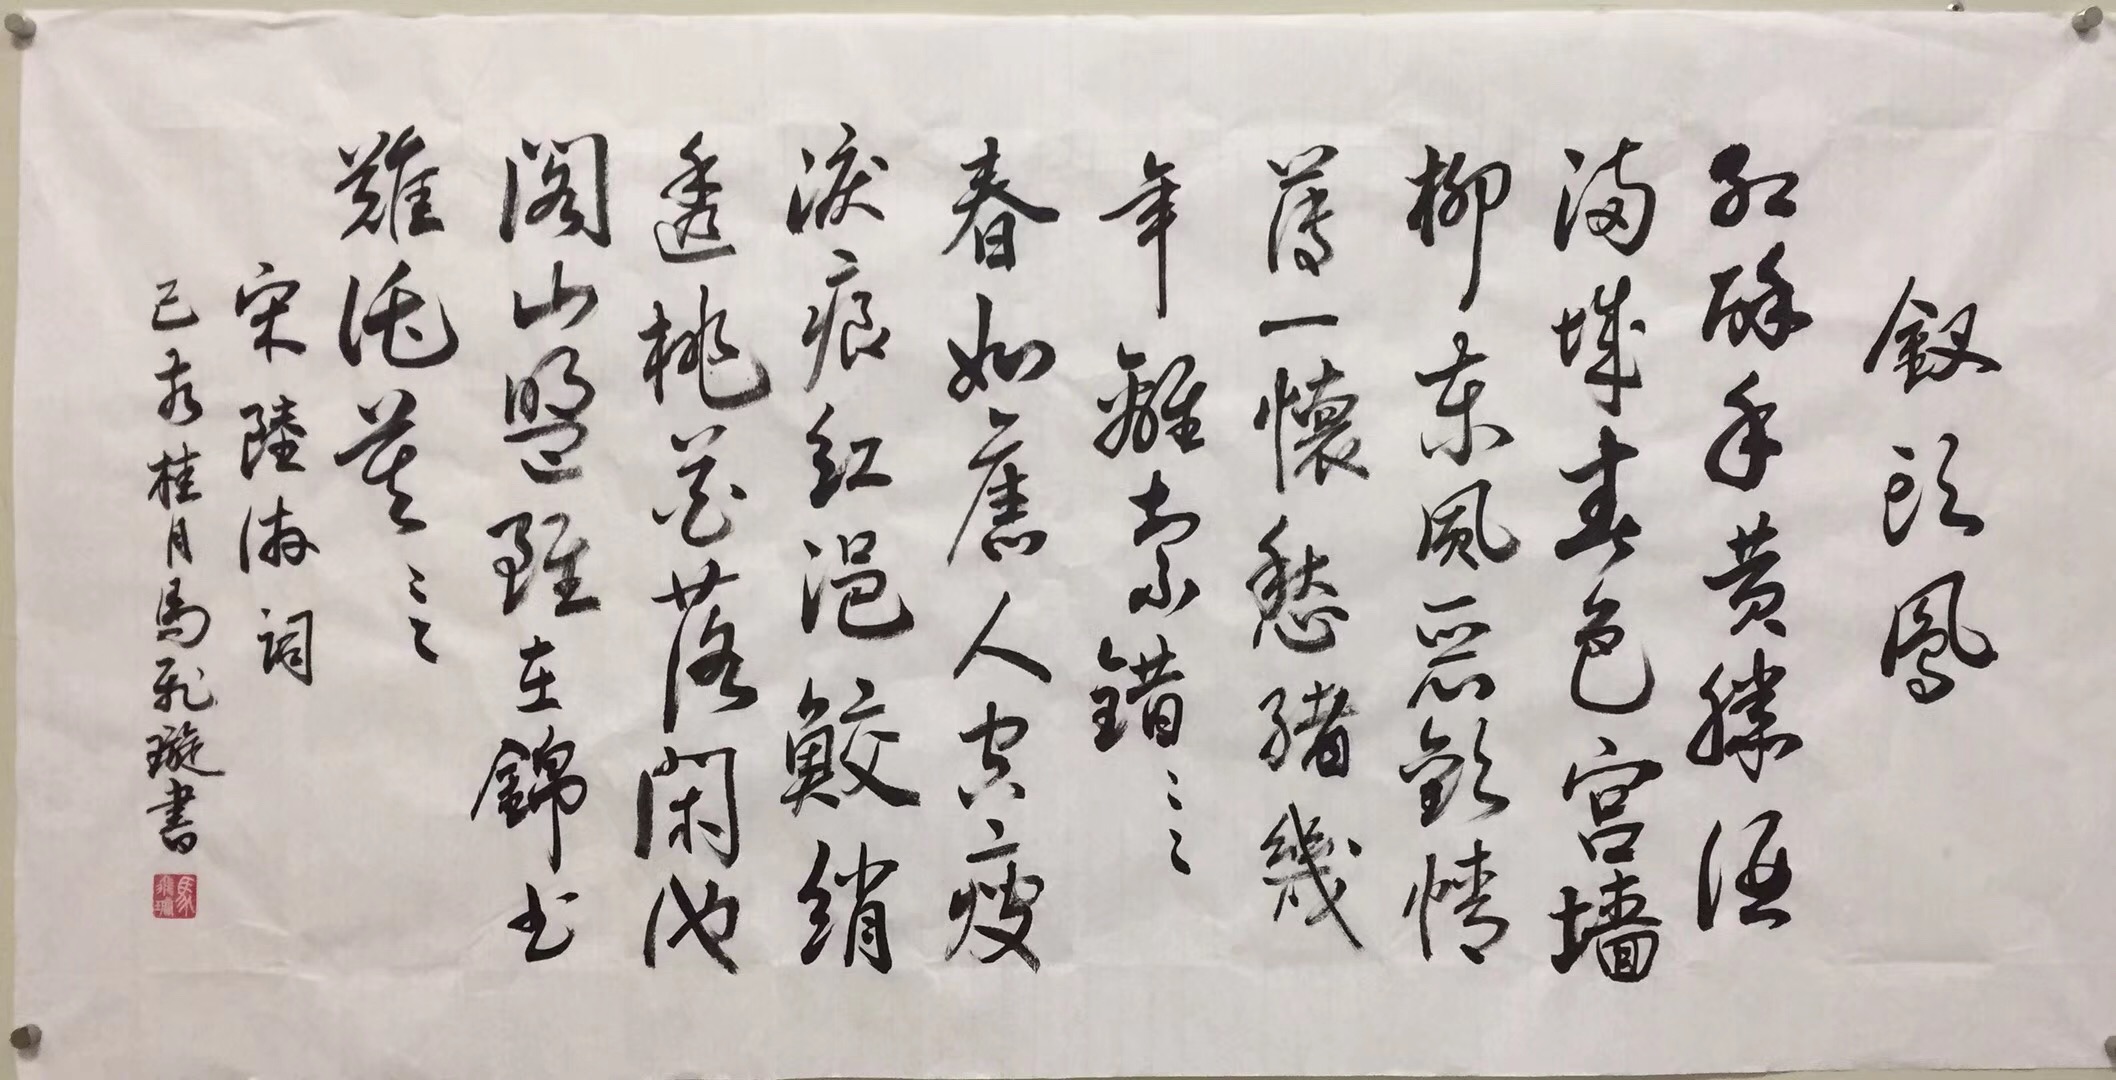 釵頭鳳
紅酥手黄滕酒
滿城春色宫墙
柳東風惡歡情
薄一懷愁緒幾
年離索錯〻〻
春如舊人空瘦
淚痕紅浥鮫綃
透桃花落閑池
閣山盟雖在錦书
難託莫〻〻
宋陸游詞
己亥桂月馬飛璇書